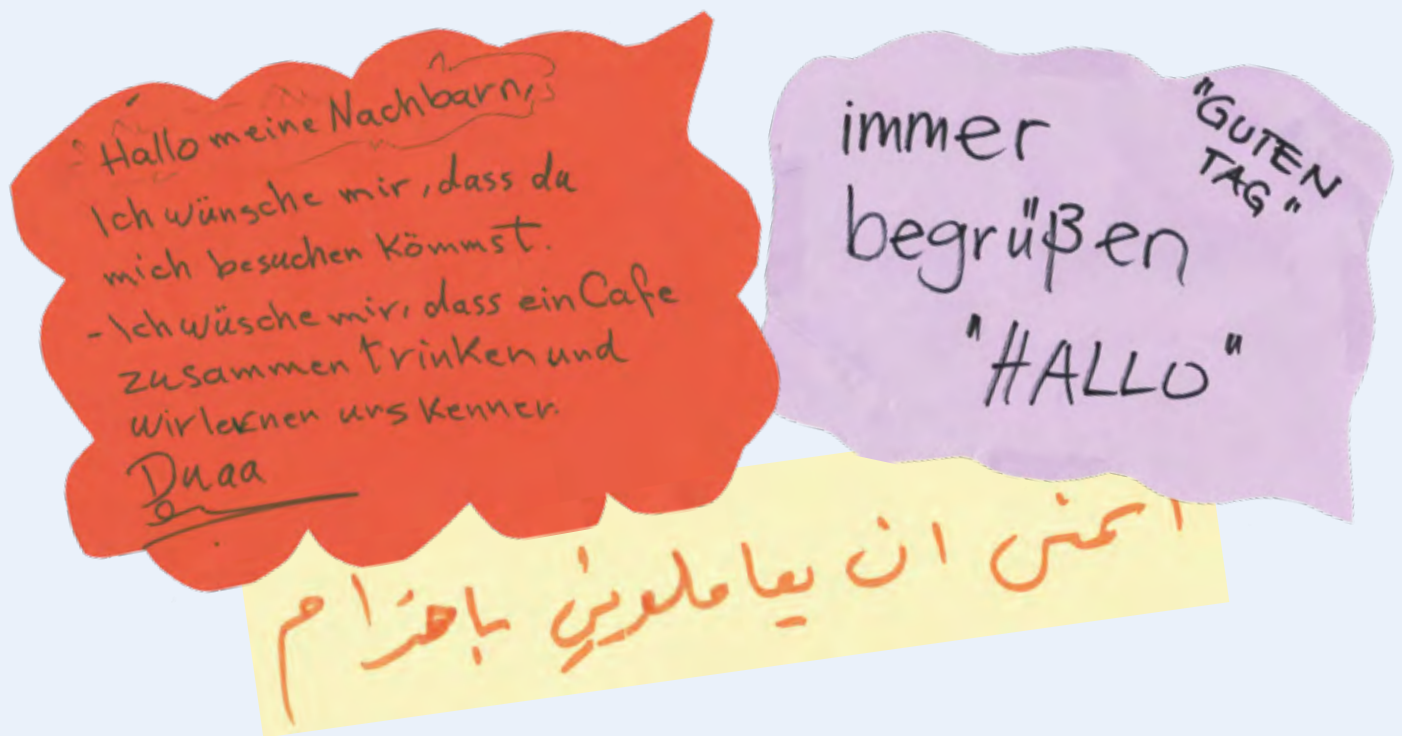 Hallo meine Nachbarn,
Ich wünsche mir, dass du
mich besuchen kömmst.
- Ich wüsche mir, dass ein Cafe
zusammen trinken und
wir lernen uns kennen.
Duaa
immer
"GUTEN
TAG"
begrüßen
"HALLO"
اتمنى ان يعاملوني باحترام